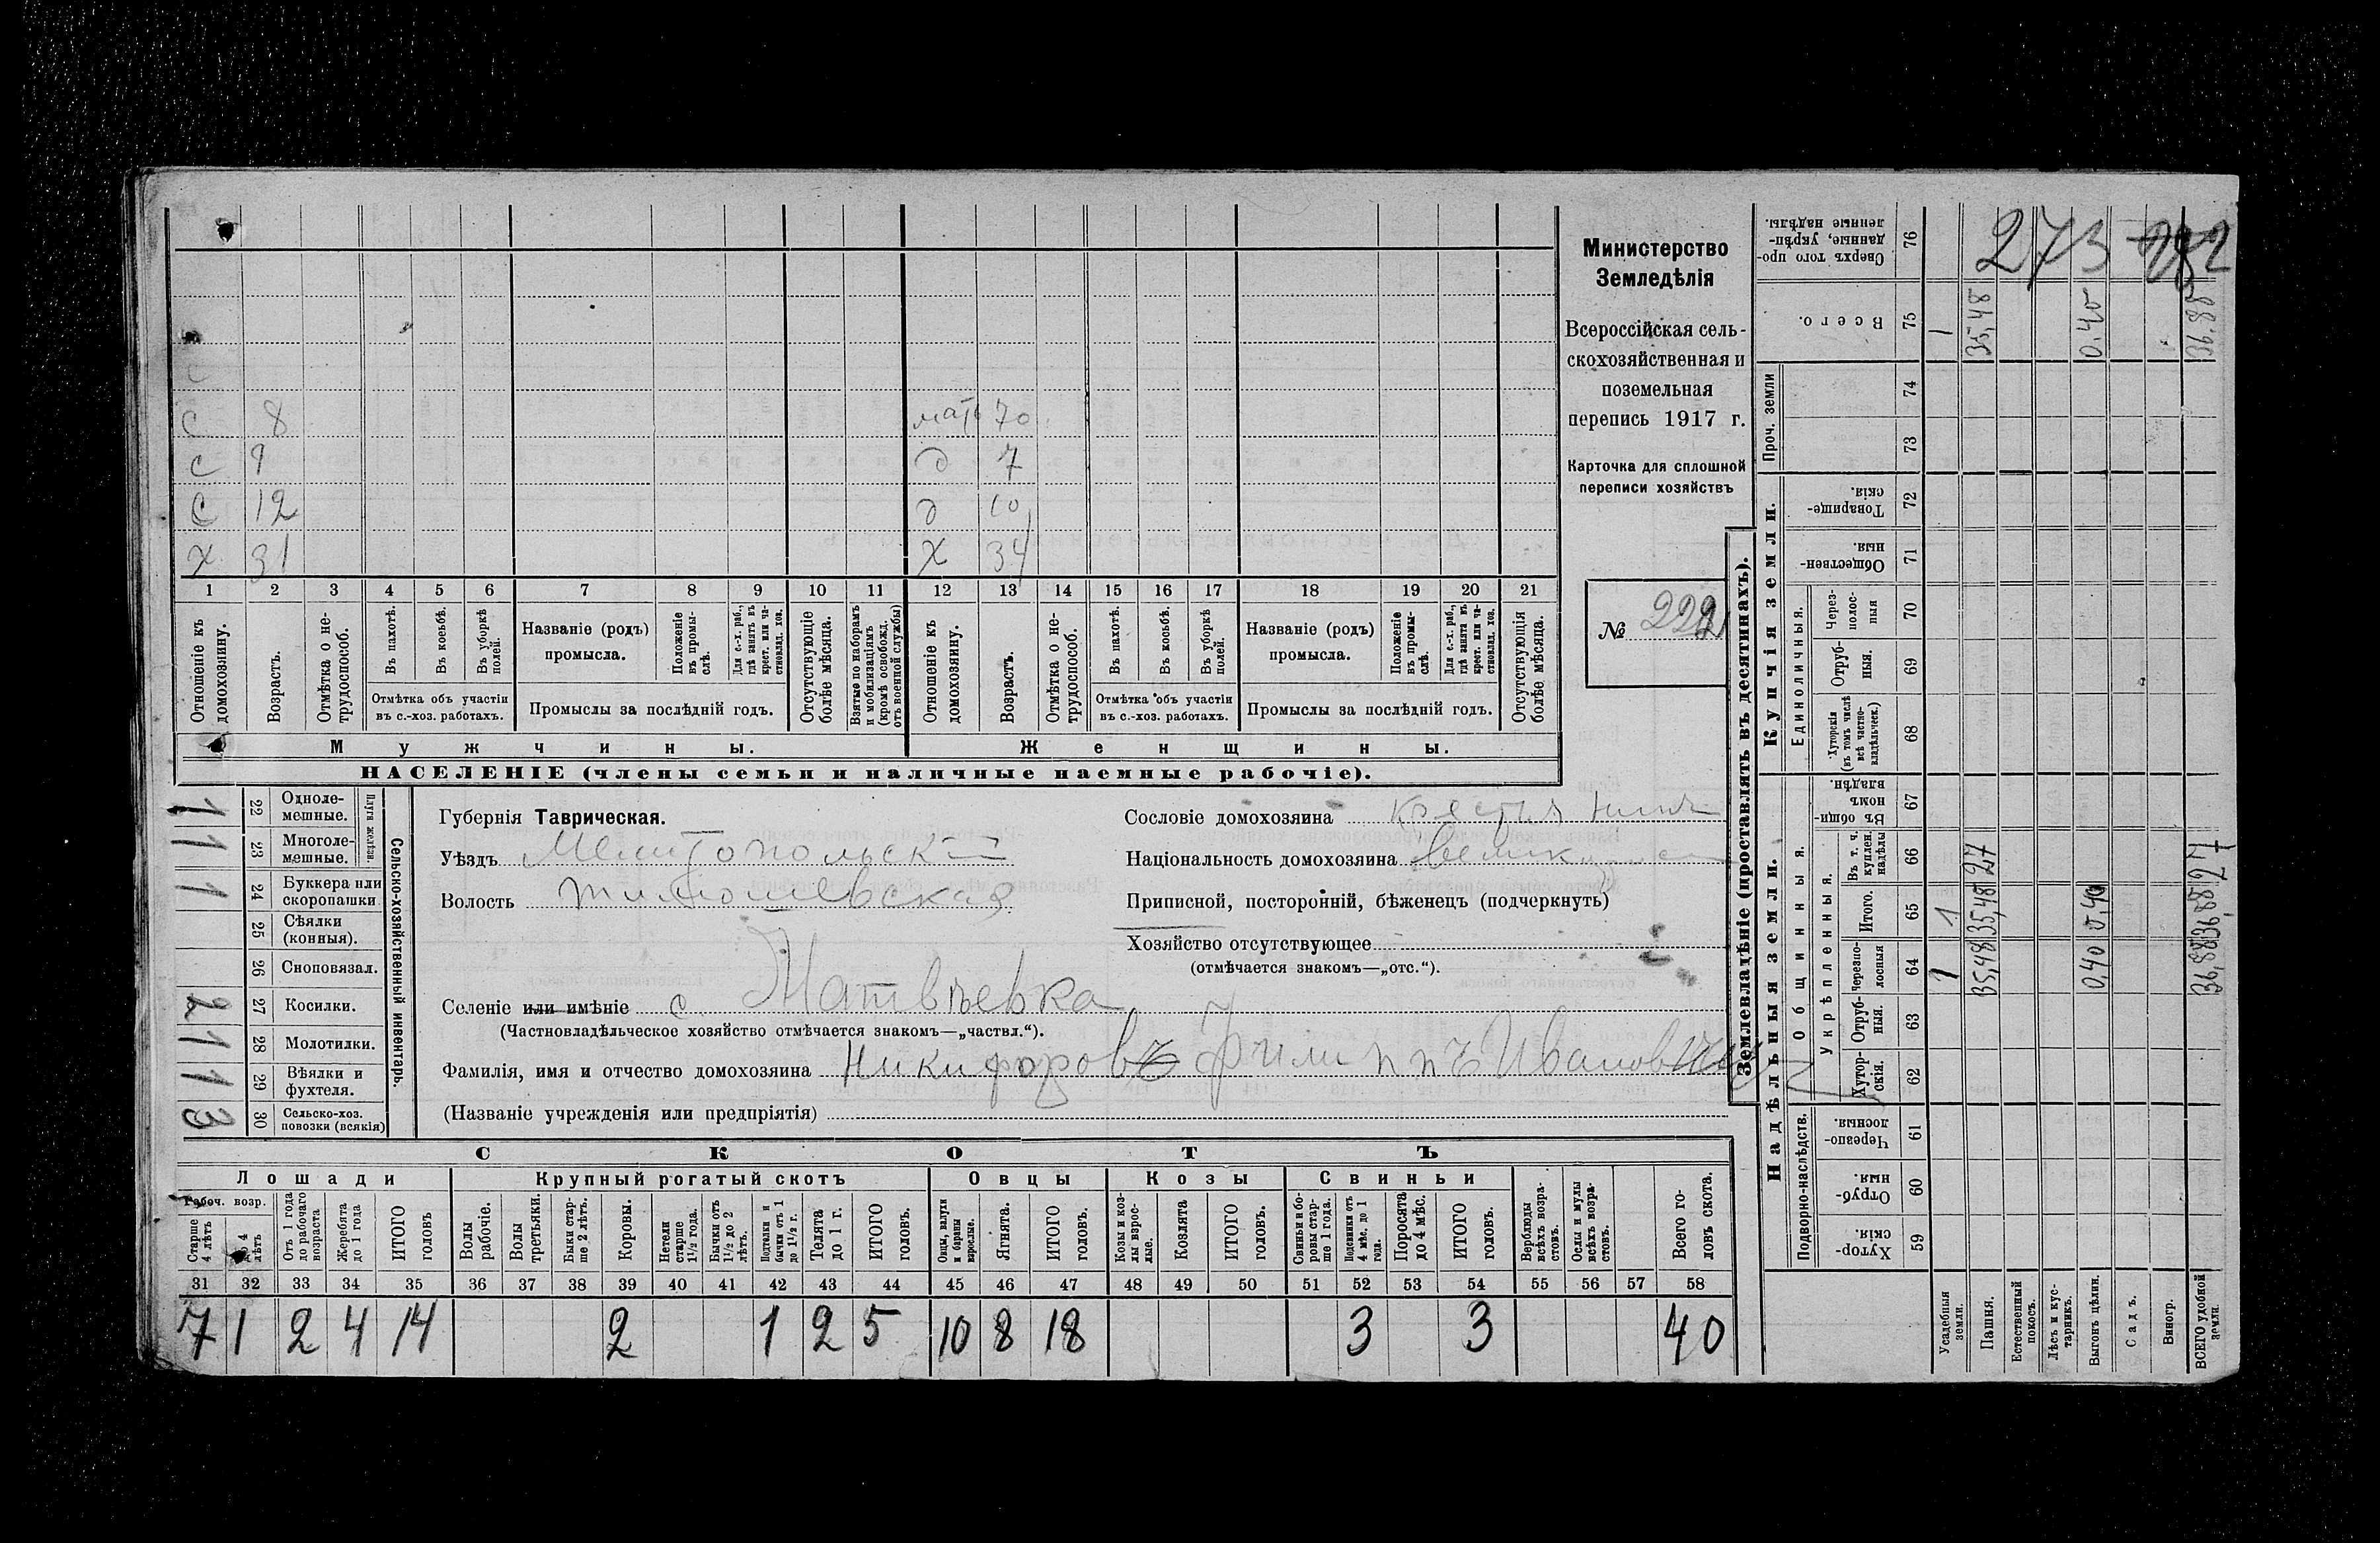 с 8 мать 70
с 9 д 7
с 12 д 10
х 31 х 34
1 2 3 4 5 6 7 8 9 10 11 12 13 14 15 16 17 18 19 20 21
Отношеніе къ домохозяину.
Возрастъ.
Отмѣтка о не-трудоспособ.
Въ пахотѣ.
Въ косьбѣ.
Въ уборкѣ полей.
Отмѣтка объ участіи
въ с.-хоз. работахъ.
Названіе (родъ)
промысла.
Положеніе въ промы-слѣ.
Для с.-х. раб., гдѣ занятъ въ крест. или ча-стновлад. хоз.
Промыслы за послѣдній годъ.
Отсутствующіе болѣе мѣсяца.
Взятые по наборамъ и мобилизаціямъ (кромѣ освобожд. отъ военной службы)
Отношеніе къ домохозяину.
Возрастъ.
Отмѣтка о не-трудоспособ.
Въ пахотѣ.
Въ косьбѣ.
Въ уборкѣ полей.
Отмѣтка объ участіи
въ с.-хоз. работахъ.
Названіе (родъ)
промысла.
Положеніе въ промы-слѣ.
Для с.-х. раб., гдѣ занята въ крест. или ча-стновлад. хоз.
Промыслы за послѣдній годъ.
Отсутствующія болѣе мѣсяца.
Мужчины. Женщины.
НАСЕЛЕНІЕ (члены семьи и наличные наемные рабочіе).
Министерство
Земледѣлія
Всероссійская сель-
скохозяйственная и
поземельная
перепись 1917 г.
Карточка для сплошной
переписи хозяйствъ
№
Сельско-хозяйственный инвентарь.
Плуги желѣзн.
22 Одноле-мешные. 1
23 Многоле-мешные. 1
24 Буккера или скоропашки 1
25 Сѣялки (конныя).
26 Сноповязал.
27 Косилки. 2
28 Молотилки. 1
29 Вѣялки и фухтеля. 1
30 Сельско-хоз. повозки (всякія) 3
Губернія Таврическая.
Уѣздъ Мелитопольскій
Волость Тимошевская
Селеніе или имѣніе с. Матвѣевка
(Частновладѣльческое хозяйство отмѣчается знакомъ—„частвл.“).
Фамилія, имя и отчество домохозяина Никифоровъ Филиппъ Ивановичъ
(Названіе учрежденія или предпріятія)
Сословіе домохозяина крестьянинъ
Національность домохозяина
Приписной, посторонній, бѣженецъ (подчеркнуть)
Хозяйство отсутствующее
(отмѣчается знакомъ—„отс.“).
СКОТЪ
Лошади Крупный рогатый скотъ Овцы Козы Свиньи
Рабоч. возр.
Старше 4 лѣтъ
до 4 лѣтъ
Отъ 1 года до рабочаго возраста
Жеребята до 1 года
ИТОГО головъ
Волы рабочіе.
Волы третьяки.
Быки стар-ше 2 лѣтъ.
Коровы.
Нетели старше 1½ года.
Бычки отъ 1½ до 2 лѣтъ.
Подтелки и бычки отъ 1 до 1½ г.
Телята до 1 г.
ИТОГО головъ.
Овцы, валухи и бараны взрослые.
Ягнята.
ИТОГО головъ.
Козы и коз-лы взрос-лые.
Козлята
ИТОГО головъ.
Свиньи и бо-ровы стар-ше 1 года.
Подсвинки отъ 4 мѣс. до 1 года.
Поросята до 4 мѣс.
ИТОГО головъ.
Верблюды всѣхъ возра-стовъ.
Ослы и мулы всѣхъ возра-стовъ.
Всего го-ловъ скота.
31 32 33 34 35 36 37 38 39 40 41 42 43 44 45 46 47 48 49 50 51 52 53 54 55 56 57 58
7 1 2 4 14 2 1 2 5 10 8 18 3 3 40
Землевладѣніе (проставлять въ десятинахъ).
Надѣльныя земли. Купчія земли.
Подворно-наслѣдств. Общинныя. Укрѣпленныя. Единоличныя. Проч. земли
Хутор-скія. 59
Отруб-ныя. 60
Черезпо-лосныя. 61
Хутор-скія. 62
Отруб-ныя. 63
Черезпо-лосныя 64
Итого. 65
Въ т. ч. куплен. надѣлы 66
Въ общин-номъ владѣн. 67
Хуторскія (въ томъ числѣ всѣ частно-владѣльческ.) 68
Отруб-ныя. 69
Через-полос-ныя 70
Обществен-ныя. 71
Товарище-скія. 72
73
74
Всего. 75
Сверхъ того про-данные, укрѣп-ленные надѣлы. 76
Усадебныя земли. 1 1 1
Пашня. 35,48 35,48 27 35,48
Естественный покосъ.
Лѣсъ и кус-тарникъ.
Выгонъ цѣлин. 0,40 0,40 0.40
Садъ.
Виногр.
ВСЕГО удобной земли. 36,88 36,88 27 36.88
273